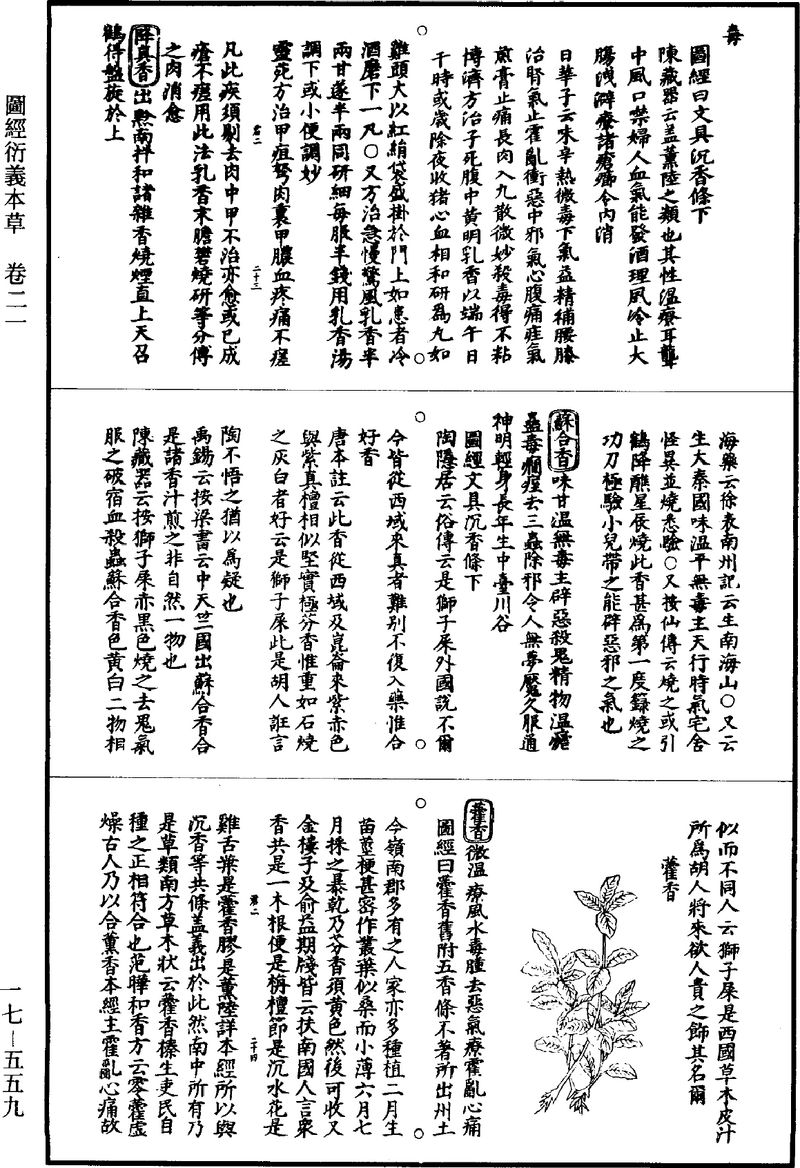 毒
圖經曰文具沉香條下
陳藏器云蓋薰陸之類也其性溫療耳聾
中風口禁婦人血氣能發酒理風冷止大
腸洩澼療諸瘡癤令內消
日華子云味辛熱微毒下氣益精補腰膝
治腎氣止霍亂衝惡中邪氣心腹痛疰氣
煎膏止痛長肉入丸散微妙殺毒得不粘
博濟方治子死腹中黃明乳香以端午日
午時或歲除夜收猪心血相和研爲丸如
雞頭大以紅絹袋盛掛於門上如患者冷
酒磨下一丸○又方治急慢驚風乳香半
兩甘遂半兩同研細每服半錢用乳香湯
調下或小便調妙
靈苑方治甲疽弩肉裏甲膿血疼痛不瘥
凡此疾須剔去肉中甲不治亦愈或已成
瘡不瘥用此法乳香末膽礬燒研等分傅
之肉消愈
降真香出黔南拌和諸雜香燒煙直上天召
鶴得盤旋於上
海藥云徐表南州記云生南海山○又云
生大秦國味溫平無毒主天行時氣宅舍
怪異並燒悉驗○又按仙傳云燒之或引
鶴降醮星辰燒此香甚爲第一度籙燒之
功力極驗小兒帶之能辟惡邪之氣也
蘇合香味甘溫無毒主辟惡殺鬼精物溫瘧
蠱毒癎痓去三蟲除邪令人無夢魘久服通
神明輕身長年生中臺川谷
圖經文具沉香條下
陶隱居云俗傳云是獅子屎外國說不爾
今皆從西域來真者難別不復入藥惟合
好香
唐本註云此香從西域及崑崙來紫赤色
與紫真檀相似堅實極芬香惟重如石燒
之灰白者好云是獅子屎此是胡人誑言
陶不悟之猶以爲疑也
禹錫云按梁書云中天竺國出蘇合香合
是諸香汁煎之非自然一物也
陳藏器云按獅子屎赤黑色燒之去鬼氣
服之破宿血殺蟲蘇合香色黃白二物相
似而不同人云獅子屎是西國草木皮汁
所爲胡人將來欲人貴之飾其名爾
藿香
藿香微溫療風水毒腫去惡氣療霍亂心痛
圖經曰藿香舊附五香條不著所出州土
今嶺南郡多有之人家亦多種植二月生
苗莖梗甚密作叢葉似桑而小薄六月七
月採之暴乾乃芬香須黃色然後可收又
金樓子及俞益期牋皆云扶南國人言衆
香共是一木根便是栴檀節是沉水花是
雞舌葉是藿香膠是薰陸詳本經所以與
沉香等共條蓋義出於此然南中所有乃
是草類南方草木狀云藿香榛生吏民自
種之正相符合也范曄和香方云零藿虛
燥古人乃以合薰香本經主霍亂心痛故
圖經衍義本草　卷二一
一七—五五九